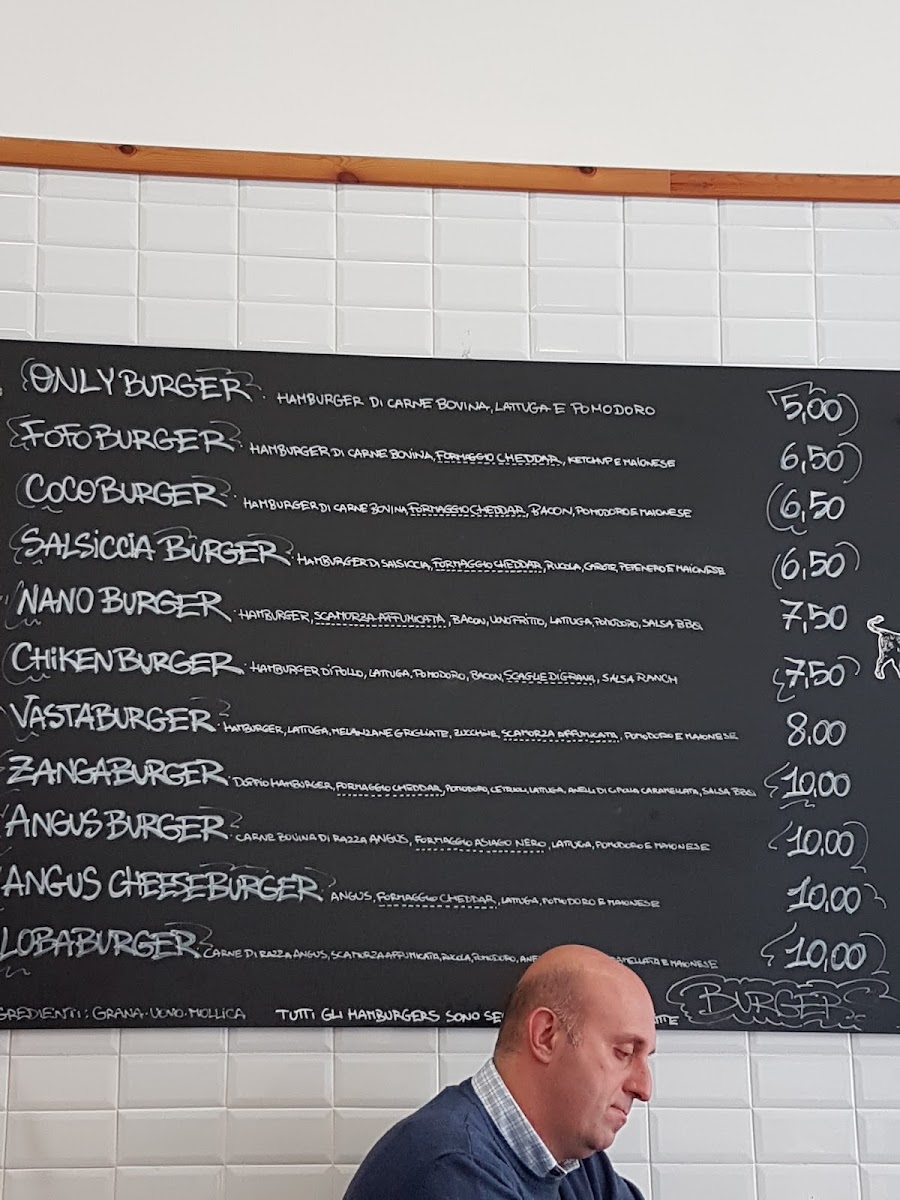 ONLY BURGER. HAMBURGER DI CARNE BOVINA, LATTUGA E POMODORO 5,00
FOFO BURGER. HAMBURGER DI CARNE BOVINA, FORMAGGIO CHEDDAR, KETCHUP E MAIONESE 6,50
COCO BURGER. HAMBURGER DI CARNE BOVINA, FORMAGGIO CHEDDAR, BACON, POMODORO E MAIONESE 6,50
SALSICCIA BURGER. HAMBURGER DI SALSICCIA, FORMAGGIO CHEDDAR, RUCOLA, CAROTE, PEPE NERO E MAIONESE 6,50
NANO BURGER. HAMBURGER, SCAMORZA AFFUMICATA, BACON, UOVO FRITTO, LATTUGA, POMODORO, SALSA BBQ 7,50
CHIKEN BURGER. HAMBURGER DI POLLO, LATTUGA, POMODORO, BACON, SCAGLIE DI GRANA, SALSA RANCH 7,50
VASTABURGER. HAMBURGER, LATTUGA, MELANZANE GRIGLIATE, ZUCCHINE, SCAMORZA AFFUMICATA, POMODORO E MAIONESE 8.00
ZANGABURGER. DOPPIO HAMBURGER, FORMAGGIO CHEDDAR, POMODORO, CETRIOLI, LATTUGA, ANELLI DI CIPOLLA CARAMELLATA, SALSA BBQ 10,00
ANGUS BURGER. CARNE BOVINA DI RAZZA ANGUS, FORMAGGIO ASIAGO NERO, LATTUGA, POMODORO E MAIONESE 10,00
ANGUS CHEESEBURGER. ANGUS, FORMAGGIO CHEDDAR, LATTUGA, POMODORO E MAIONESE 10,00
LOBABURGER. CARNE DI RAZZA ANGUS, SCAMORZA AFFUMICATA, RUCOLA, POMODORO, E MAIONESE 10,00
GREDIENTI: GRANA. UOVO. MOLLICA TUTTI GLI HAMBURGERS SONO BURGERS